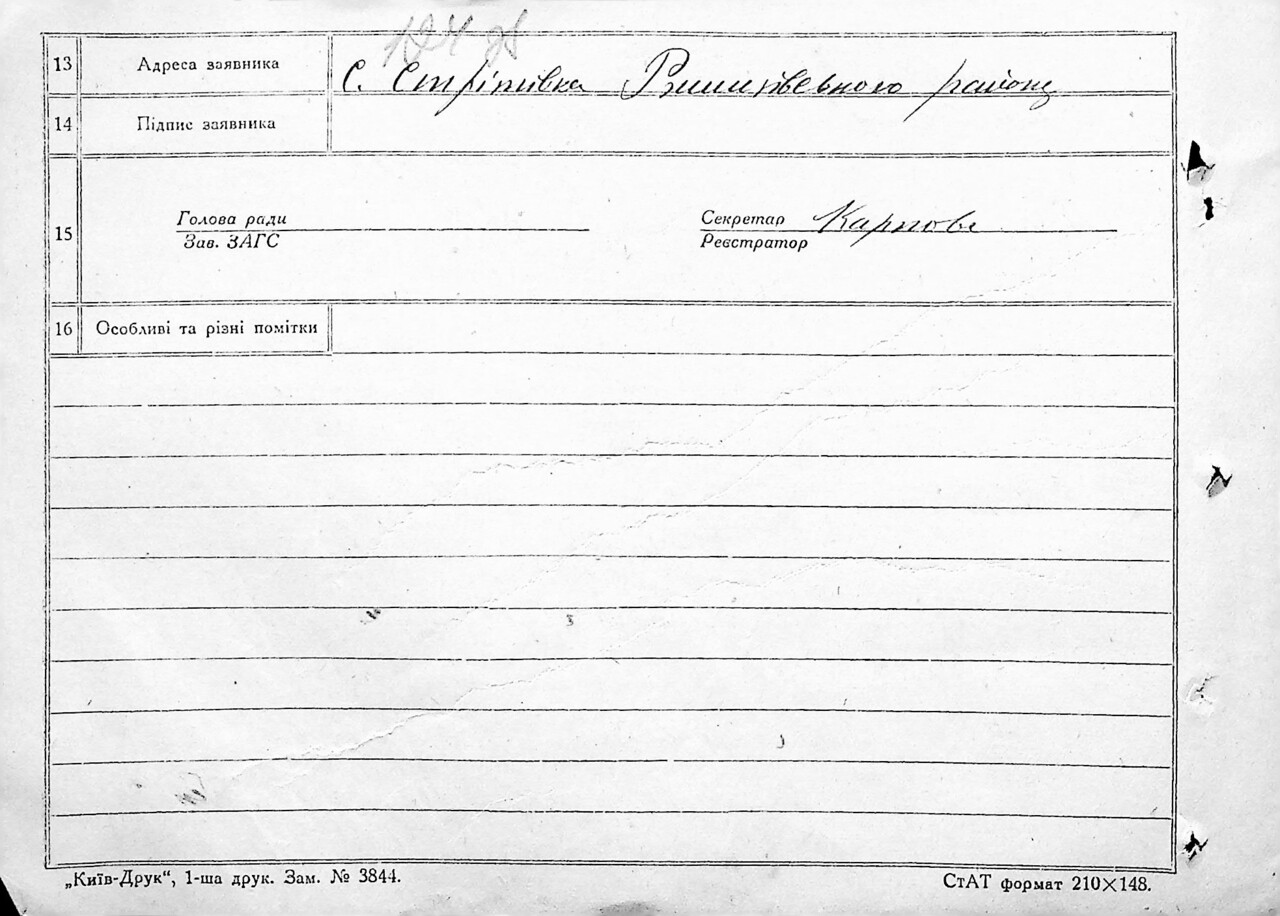 13 Адреса заявника С. Стрітівка району
14 Підпис заявника
15 Голова ради Секретар Карпова
Зав. ЗАГС Реєстратор
16 Особливі та різні помітки
„Київ-Друк“, 1-ша друк. Зам. № 3844. СтАТ формат 210×148.